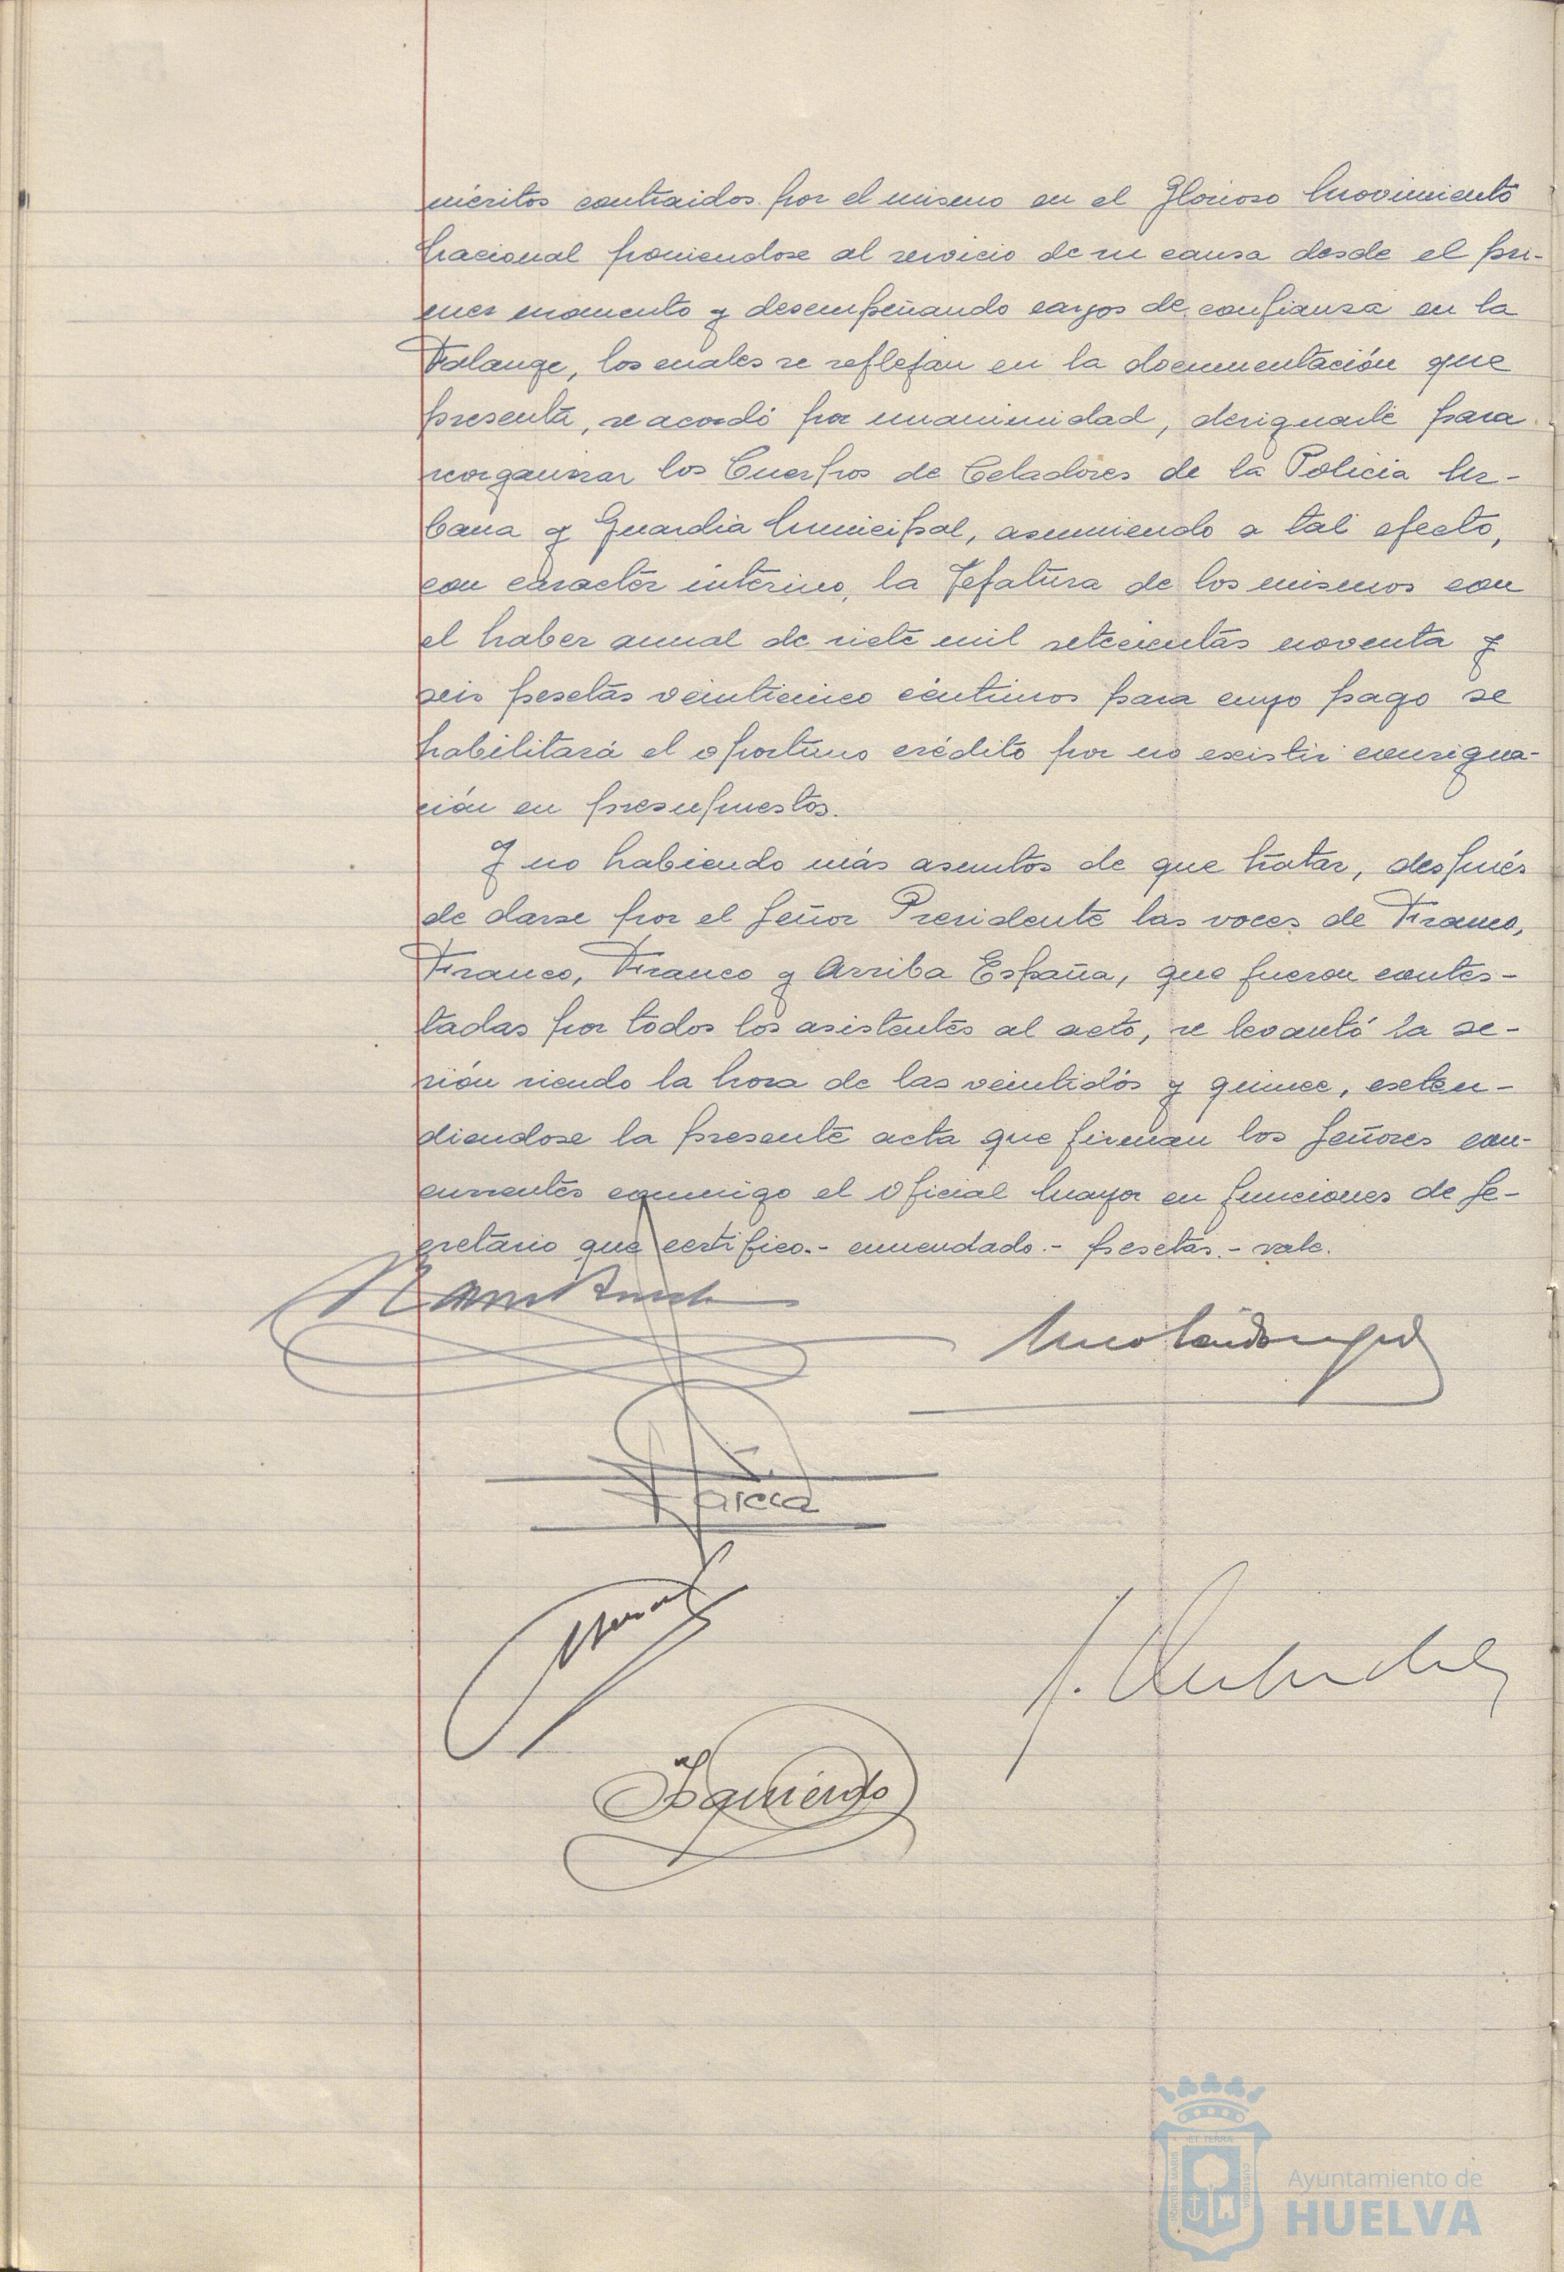 méritos contraidos por el mismo en el Glorioso Movimiento
Nacional poniendose al servicio de su causa desde el pri-
mer momento y desempeñando cargos de confianza en la
Falange, los cuales se reflejan en la documentación que
presenta, se acordó por unanimidad, designarle para
reorganizar los Cuerpos de Celadores de la Policia Ur-
bana y Guardia Municipal, asumiendo a tal efecto,
con caracter interino, la Jefatura de los mismos con
el haber anual de siete mil setecientas noventa y
seis pesetas veinticinco céntimos para cuyo pago se
habilitará el oportuno crédito por no existir consigna-
ción en presupuestos.
Y no habiendo más asuntos de que tratar, después
de darse por el Señor Presidente las voces de Franco,
Franco, Franco y Arriba España, que fueron contes-
tadas por todos los asistentes al acto, se levantó la se-
sión siendo la hora de las veintidós y quince, exten-
diendose la presente acta que firman los Señores con-
currentes conmigo el Oficial Mayor en funciones de Se-
cretario que certifico.- enmendado.- pesetas.- vale.
Garcia
Izquierdo
PORTUS MARIS ET TERRAE CUSTODIA
Ayuntamiento de
HUELVA